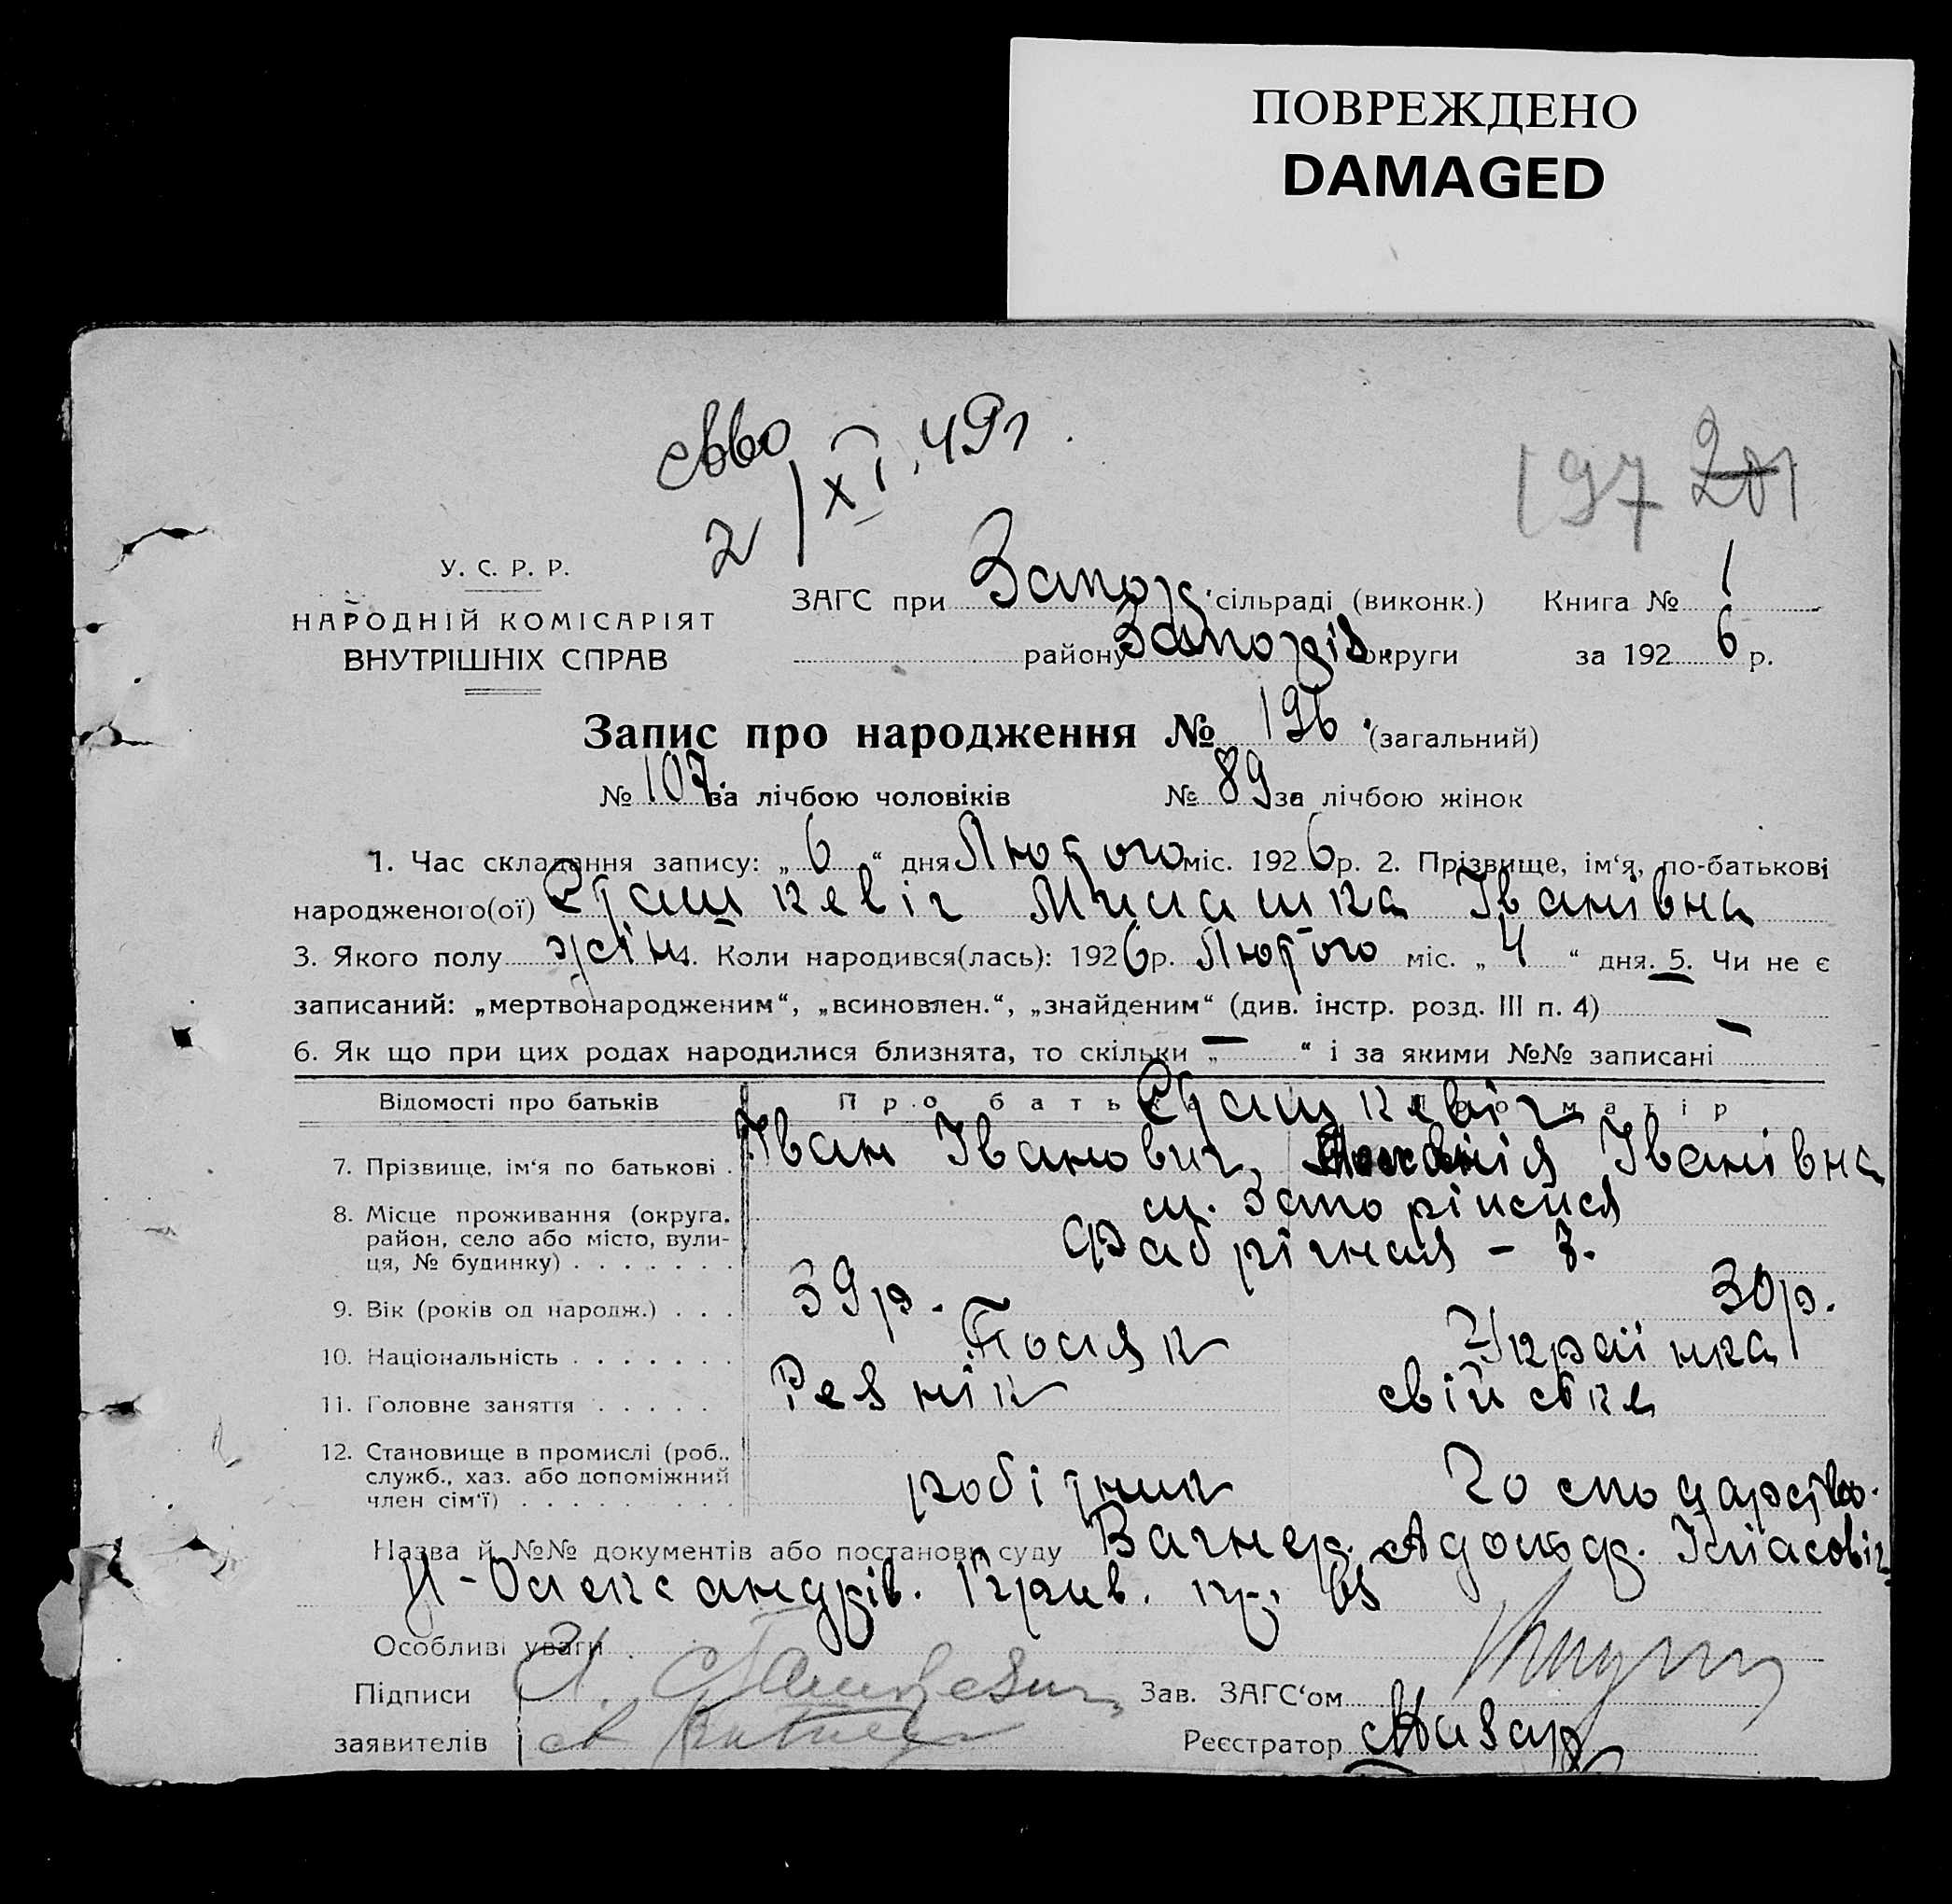 ПОВРЕЖДЕНО
DAMAGED
св-во
2/XI.49г.
197 201
У. С. Р. Р.
НАРОДНІЙ КОМІСАРІЯТ
ВНУТРІШНІХ СПРАВ
ЗАГС при Запор. сільраді (виконк.) Книга № 1
району Запоріз. округи за 1926 р.
Запис про народження № 196. (загальний)
№ 107. за лічбою чоловіків № 89 за лічбою жінок
1. Час складання запису: „6“ дня Лютого міс. 1926 р. 2. Прізвище, ім‘я, по-батькові
народженого(ої) Сташкевіч Іванівна
3. Якого полу жін. 4. Коли народився(лась): 1926 р. Лютого міс. „4“ дня. 5. Чи не є
записаний: „мертвонародженим“, „всиновлен.“, „знайденим“ (див. інстр. розд. III п. 4) —
6. Як що при цих родах народилися близнята, то скільки „—“ і за якими №№ записані
Відомості про батьків Про батька Сташкевіч Про матір
7. Прізвище, ім‘я по батькові. Іван Іванович, Іванівна
8. Місце проживання (округа, район, село або місто, вулиця, № будинку) м. Запоріжжя
Фабрічная - 7.
9. Вік (років од народж.) 39 р. 30 р.
10. Національність Поляк Українка
11. Головне заняття Резнік свійстке
12. Становище в промислі (роб., служб., хаз. або допоміжний член сім‘ї) робітник господарство.
Назва й №№ документів або постанови суду Вагнер. Адольф.
Н-Олександрів.
Особливі уваги
Підписи Сташкевич Зав. ЗАГС‘ом
заявителів Реєстратор Назар